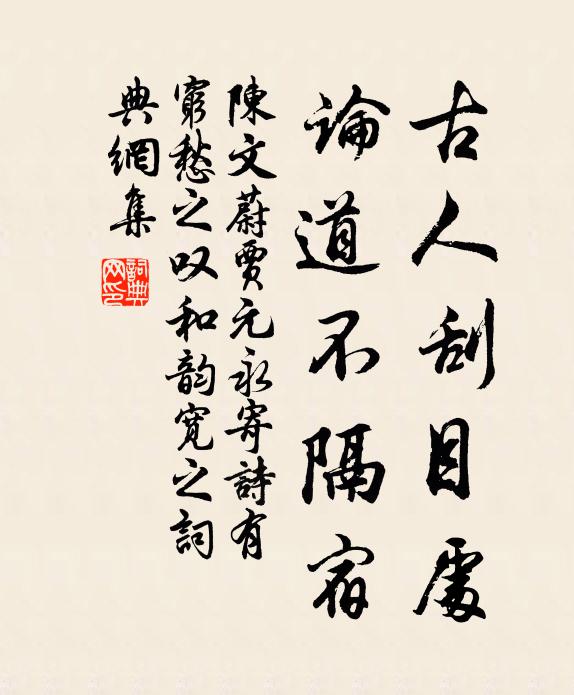 古人刮目處
論道不隔宿
陳文蔚賈元永寄詩有
窮愁之叹和韵寬之詞
典網集
詞典網印